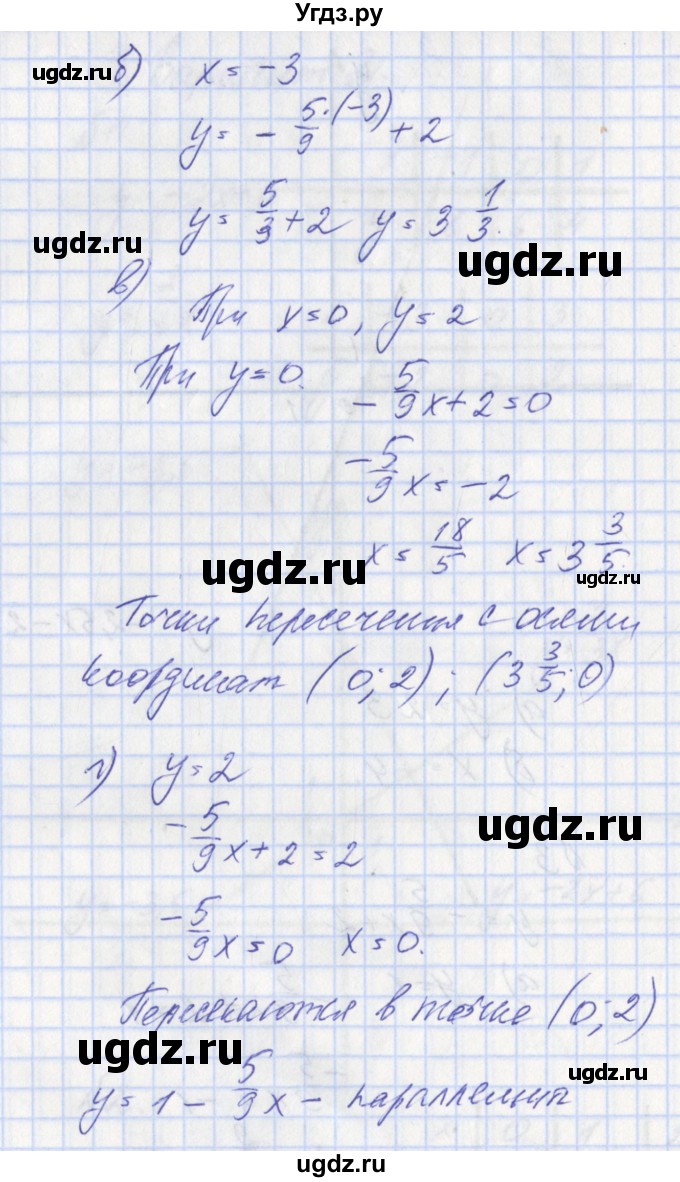 Угдз.ру
ugdz.ru
б) x = -3
y = - 5/9 · (-3) + 2
y = 5/3 + 2 y = 3 1/3.
ugdz.ru
ugdz.ru
в)
При x = 0, y = 2
При y = 0. - 5/9 x + 2 = 0
- 5/9 x = -2
x = 18/5 x = 3 3/5.
ugdz.ru
ugdz.ru
Точки пересечения с осями
координат (0; 2); (3 3/5; 0)
г) y = 2
- 5/9 x + 2 = 2
ugdz.ru
- 5/9 x = 0 x = 0.
Пересекаются в точке (0; 2)
ugdz.ru
ugdz.ru
y = 1 - 5/9 x - параллельны
ugdz.ru